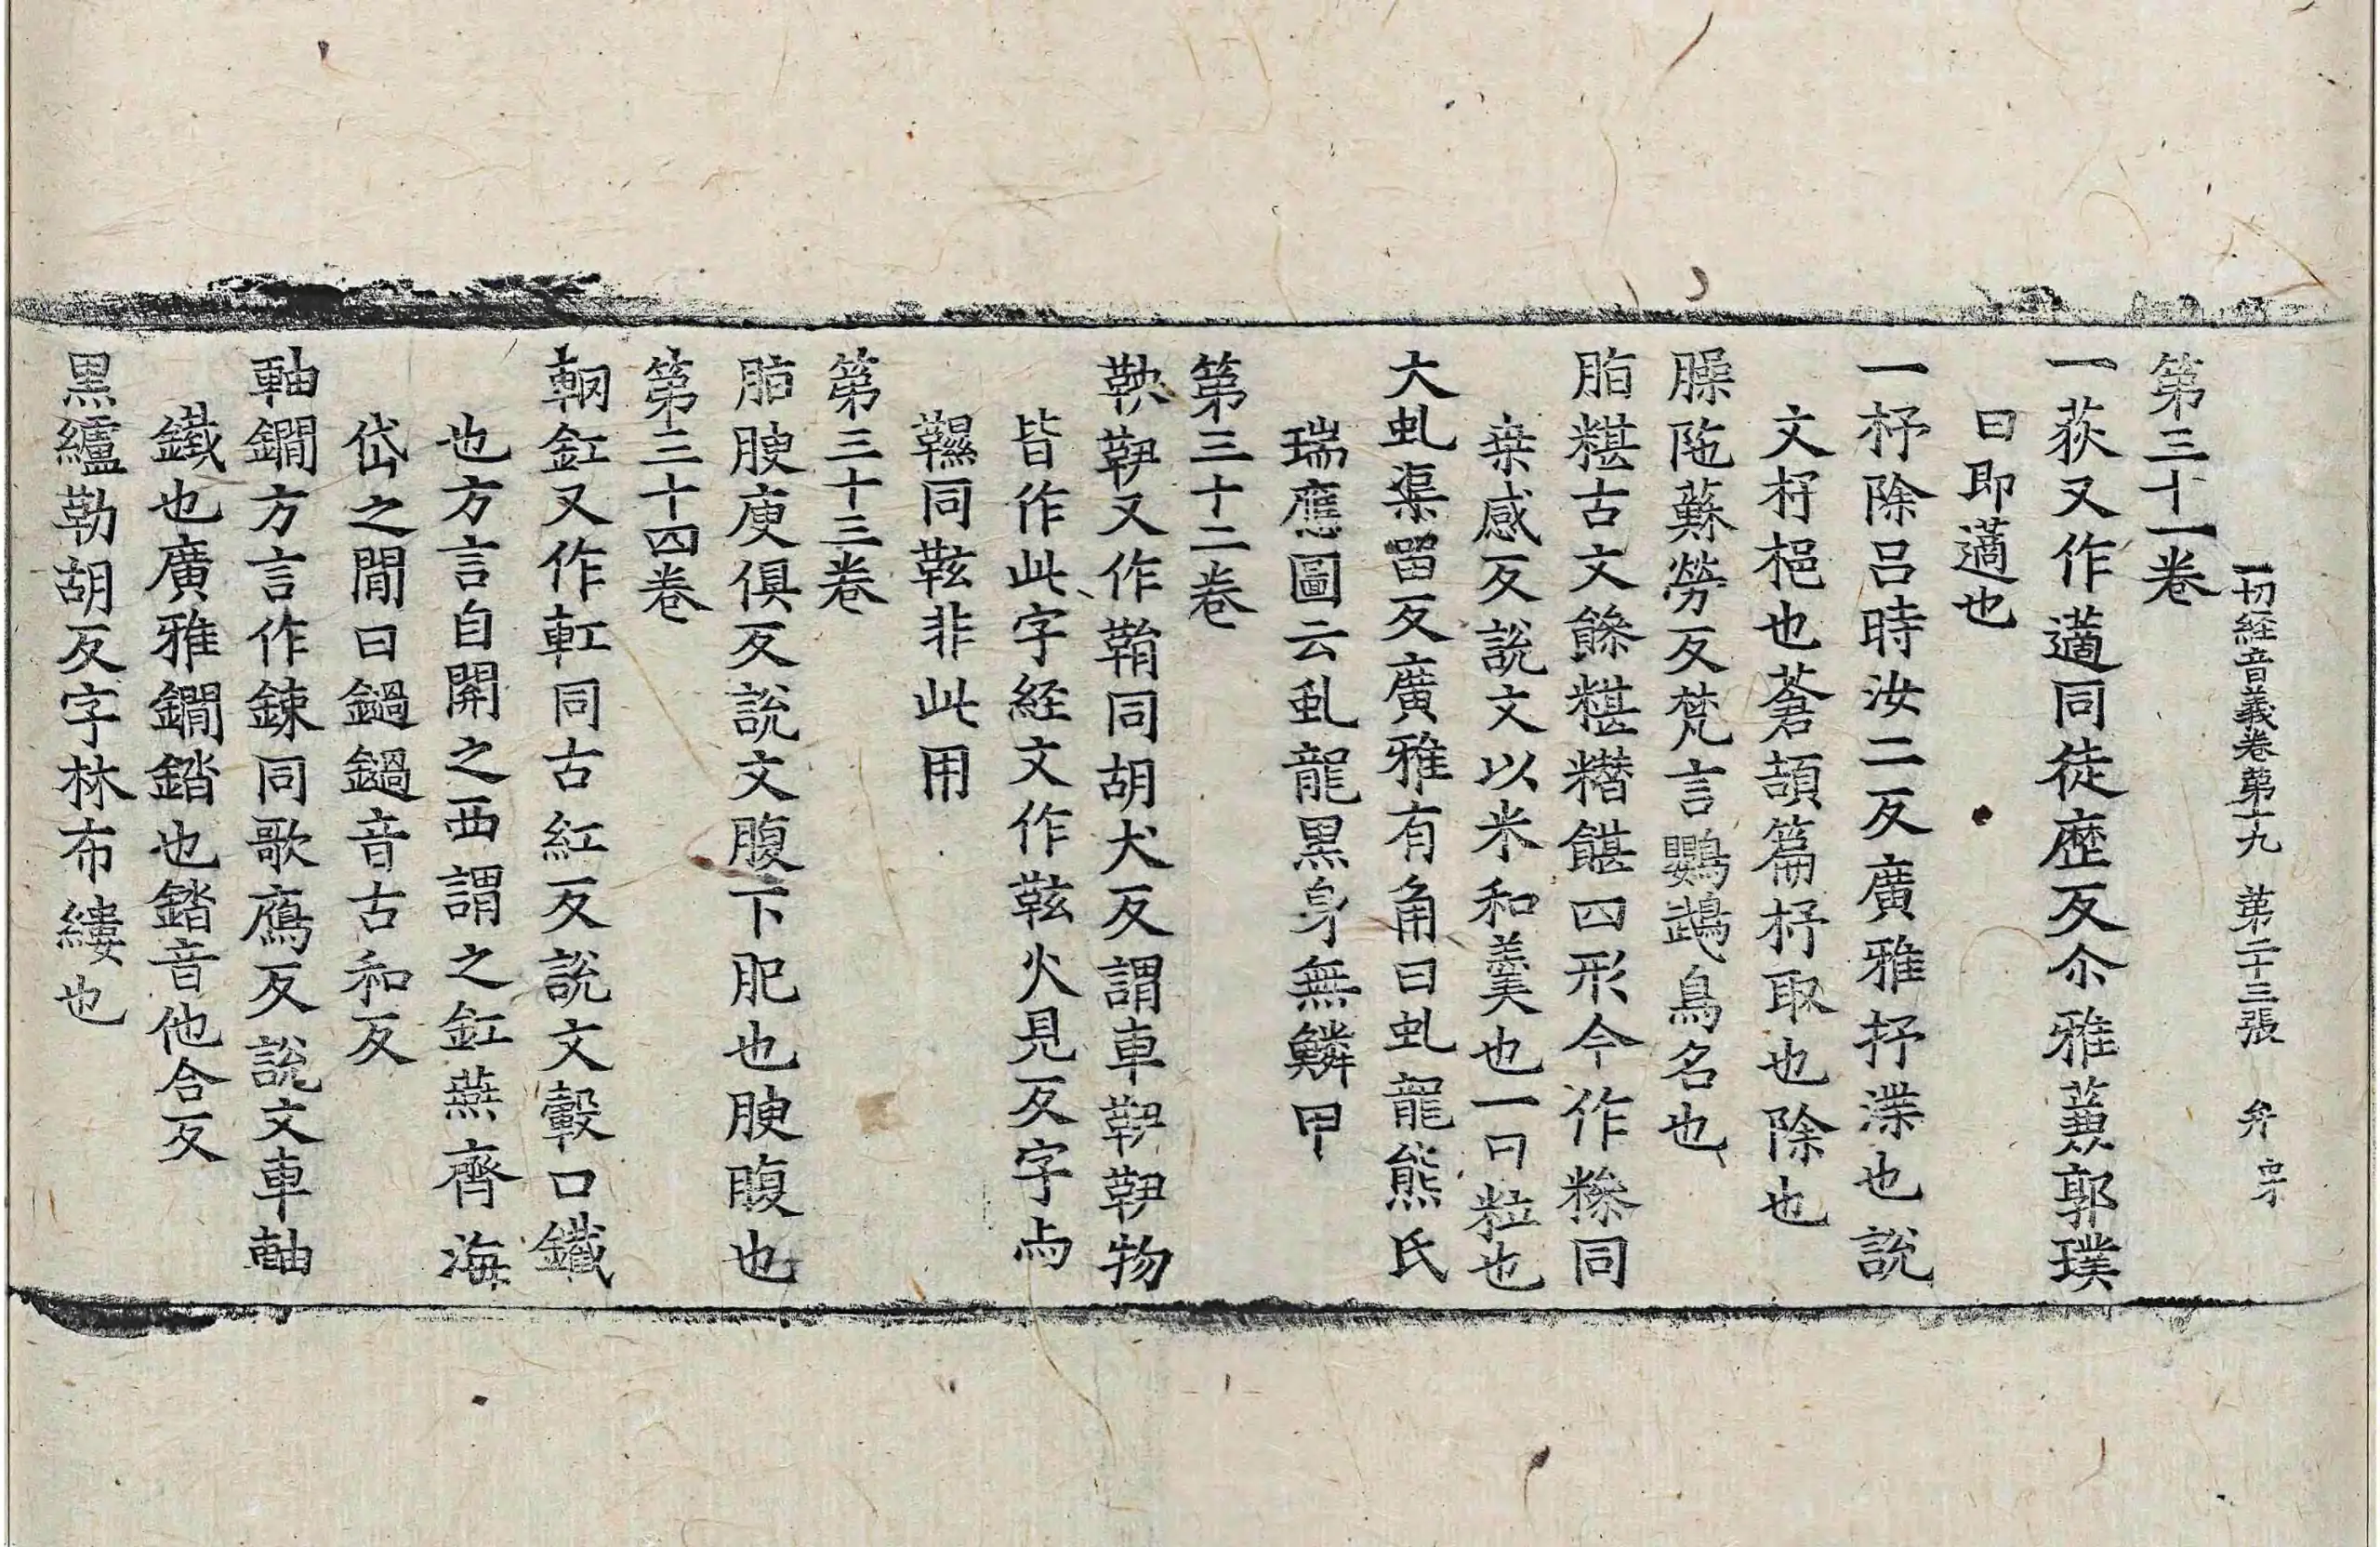 一切経音義卷第十九 第二十三張 弁
第三十一卷
一荻又作藡同徒歷反尒雅蒹郭璞
曰即藡也
一杼除呂時汝二反廣雅抒渫也說
文抒挹也蒼頡篇抒取也除也
臊陁蘇勞反梵言鸚鵡鳥名也
脂糂古文餯糂糣䭙四形今作糝同
桒感反說文以米和羹也一曰粒也
大虬渠留反廣雅有角曰虬龍熊氏
瑞應圖云虬龍黑身無鱗甲
第三十二卷
鞅䩠又作鞙同胡犬反謂車䩠䩠物
皆作此字経文作䩙火見反字與
韅同䩙非此用
第三十三卷
脂腴庾俱反說文腹下肥也腴腹也
第三十四卷
輞釭又作軖同古紅反說文轂口鐵
也方言自關之西謂之釭燕齊海
岱之閒曰鍋鍋音古和反
軸鐗方言作鍊同歌鴈反說文車軸
鐵也廣雅鐗錔也錔音他合反
黑纑勒胡反字林布縷也